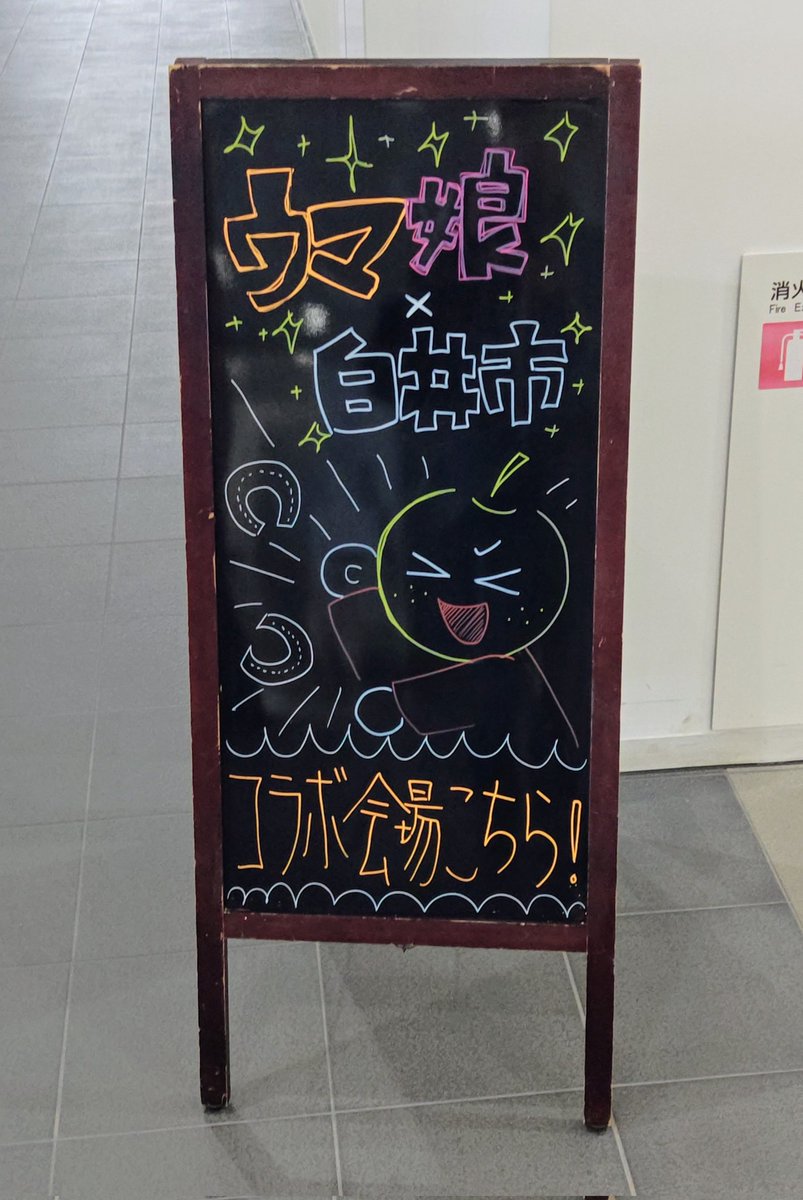 ウマ娘
×
白井市
コラボ会場こちら!
消火
Fire